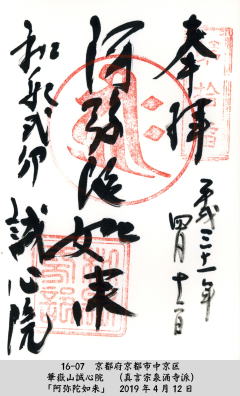 奉拝
平成三十一年
四月十二日
阿弥陀如来
和泉式部
誠心院
16-07　京都府京都市中京区
華嶽山誠心院　（真言宗泉涌寺派）
「阿弥陀如来」　2019年4月12日